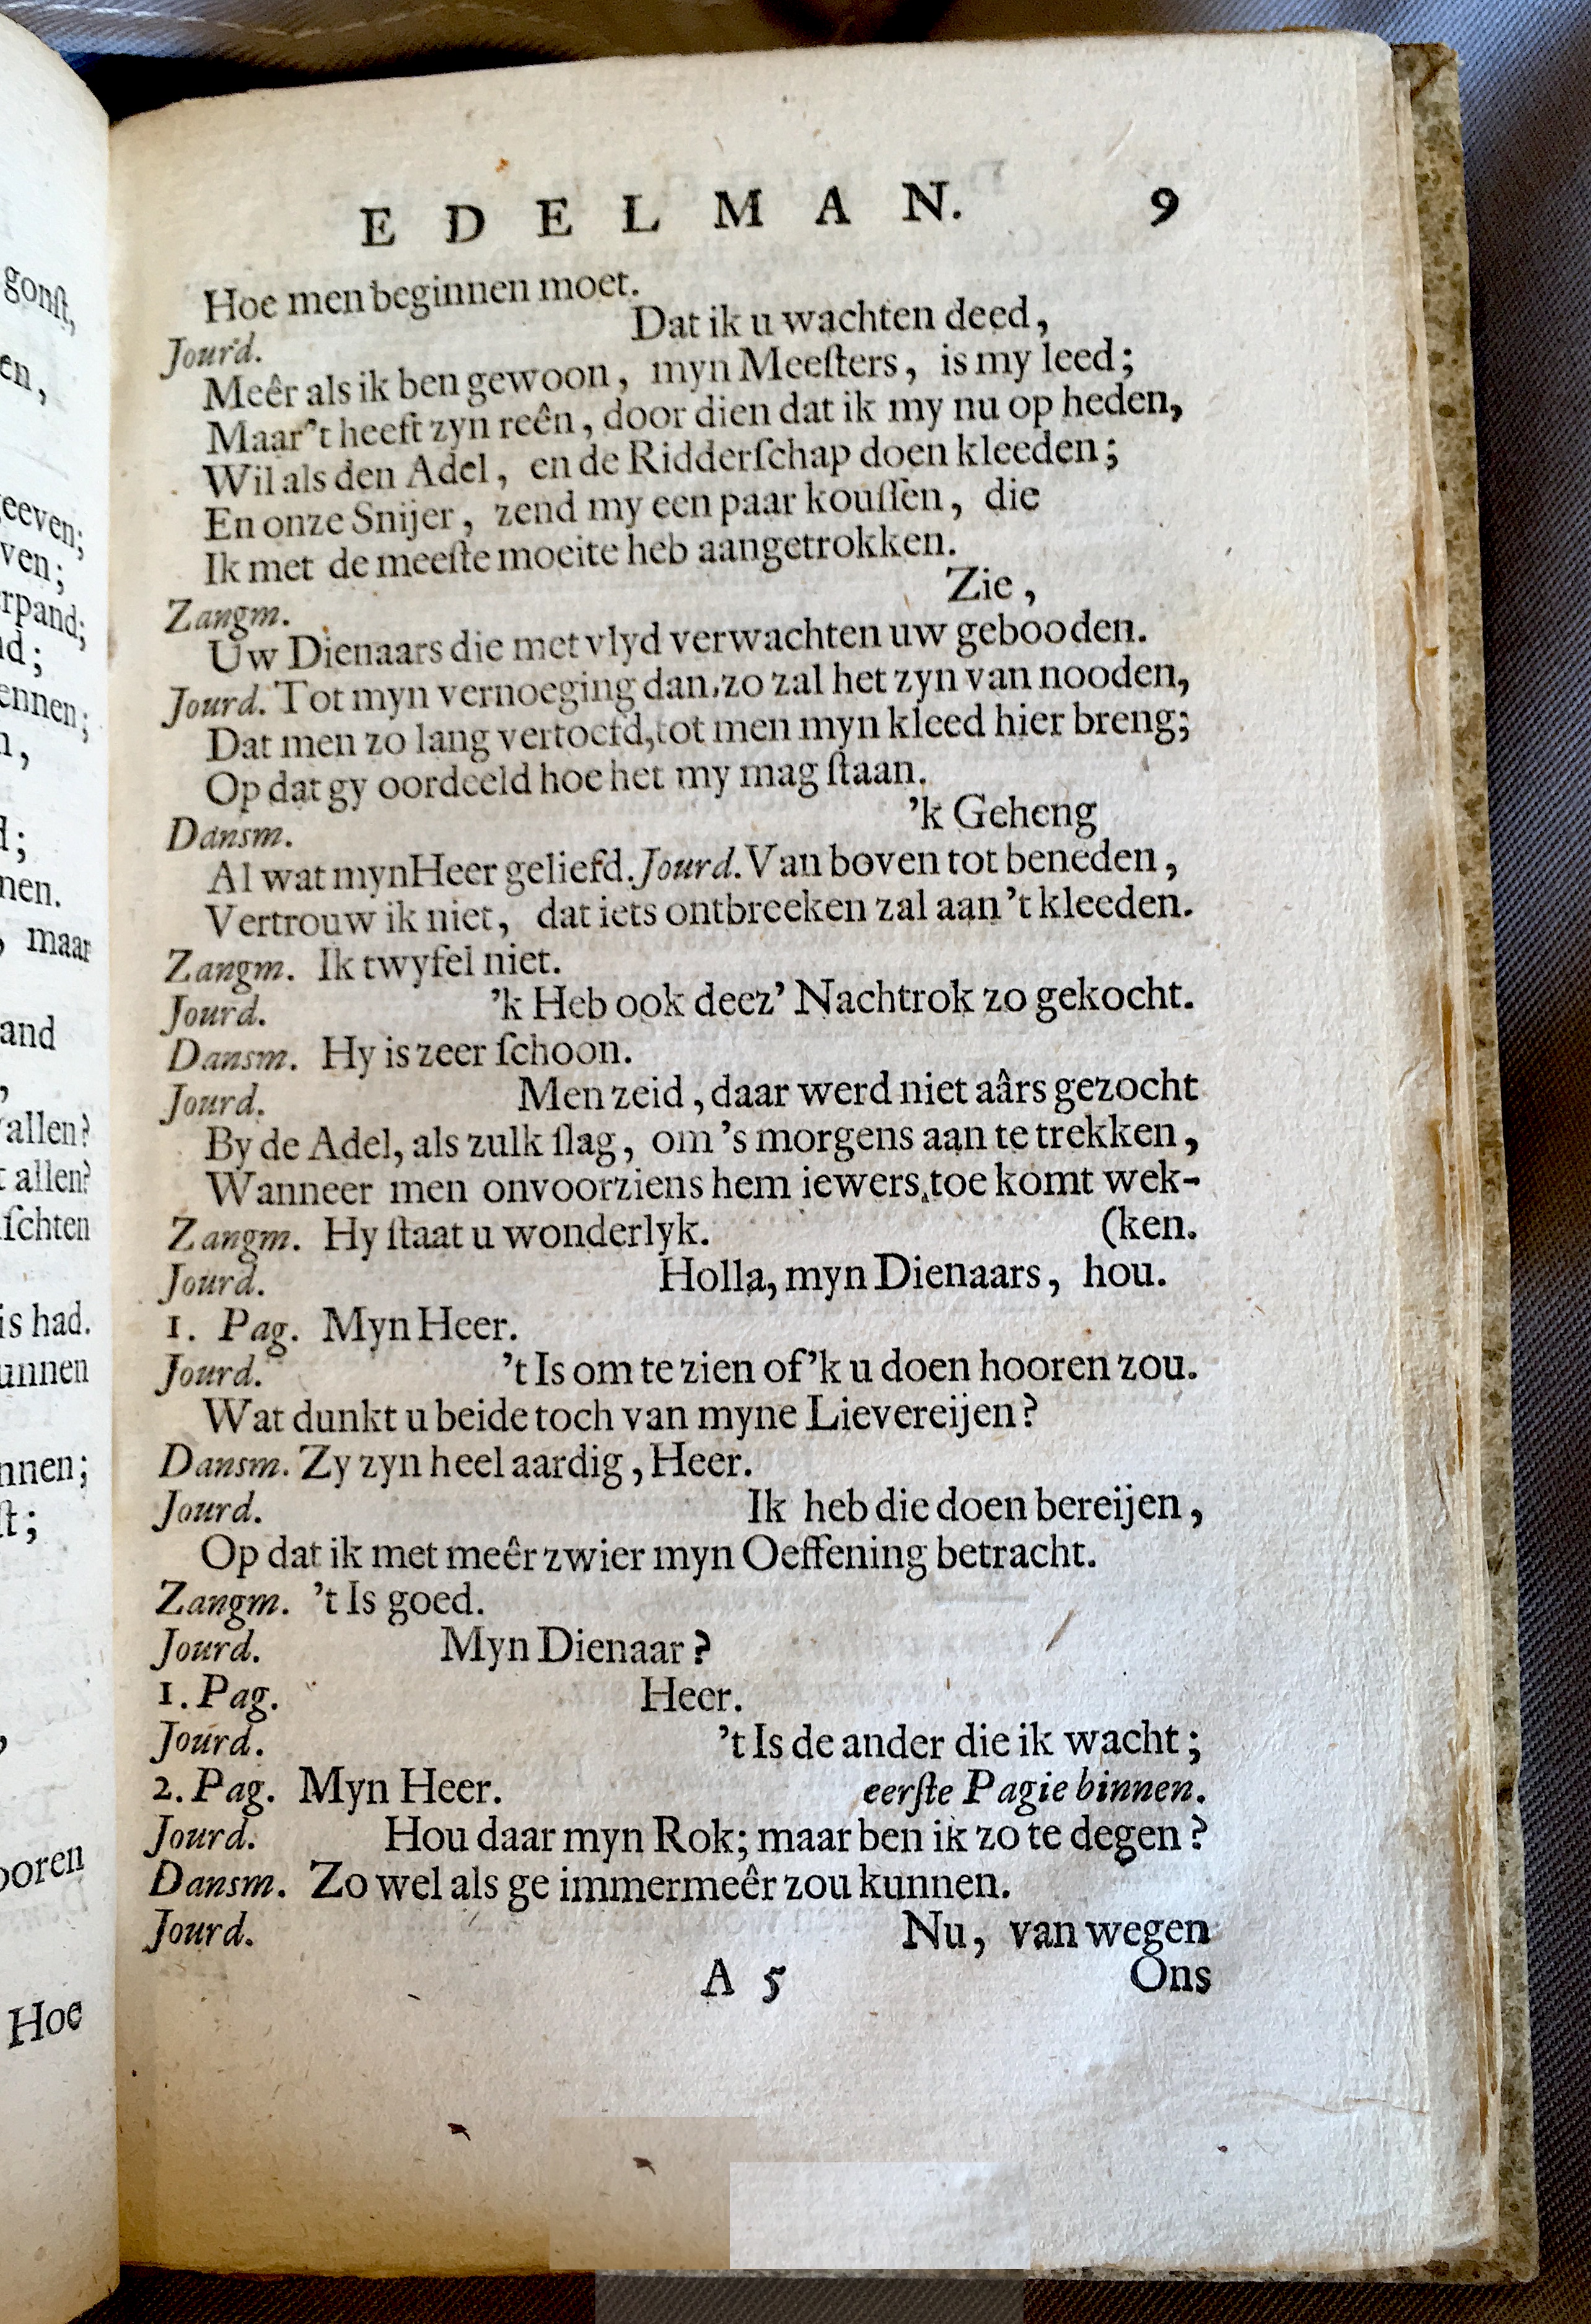 gonſt,
en,
eeven;
ven;
rpand;
nd;
ennen;
n,
d;
nen.
, maar
and
,
allen?
t allen?
ſchten
is had.
unnen
nnen;
ſt;
,
ooren
Hoe
E D E L M A N. 9
Hoe men beginnen moet.
Jourd. Dat ik u wachten deed,
Meêr als ik ben gewoon, myn Meeſters, is my leed;
Maar 't heeft zyn reên, door dien dat ik my nu op heden,
Wil als den Adel, en de Ridderſchap doen kleeden;
En onze Snijer, zend my een paar kouſſen, die
Ik met de meeſte moeite heb aangetrokken.
Zangm. Zie,
Uw Dienaars die met vlyd verwachten uw gebooden.
Jourd. Tot myn vernoeging dan, zo zal het zyn van nooden,
Dat men zo lang vertoefd, tot men myn kleed hier breng;
Op dat gy oordeeld hoe het my mag ſtaan.
Dansm. 'k Geheng
Al wat myn Heer geliefd. Jourd. Van boven tot beneden,
Vertrouw ik niet, dat iets ontbreeken zal aan 't kleeden.
Zangm. Ik twyfel niet.
Jourd. 'k Heb ook deez' Nachtrok zo gekocht.
Dansm. Hy is zeer ſchoon.
Jourd. Men zeid, daar werd niet aârs gezocht
By de Adel, als zulk ſlag, om 's morgens aan te trekken,
Wanneer men onvoorziens hem iewers toe komt wek-
Zangm. Hy ſtaat u wonderlyk. (ken.
Jourd. Holla, myn Dienaars, hou.
1. Pag. Myn Heer.
Jourd. 't Is om te zien of 'k u doen hooren zou.
Wat dunkt u beide toch van myne Lievereijen?
Dansm. Zy zyn heel aardig, Heer.
Jourd. Ik heb die doen bereijen,
Op dat ik met meêr zwier myn Oeffening betracht.
Zangm. 't Is goed.
Jourd. Myn Dienaar?
1. Pag. Heer.
Jourd. 't Is de ander die ik wacht;
2. Pag. Myn Heer. eerſte Pagie binnen.
Jourd. Hou daar myn Rok; maar ben ik zo te degen?
Dansm. Zo wel als ge immermeêr zou kunnen.
Jourd. Nu, van wegen
A 5 Ons